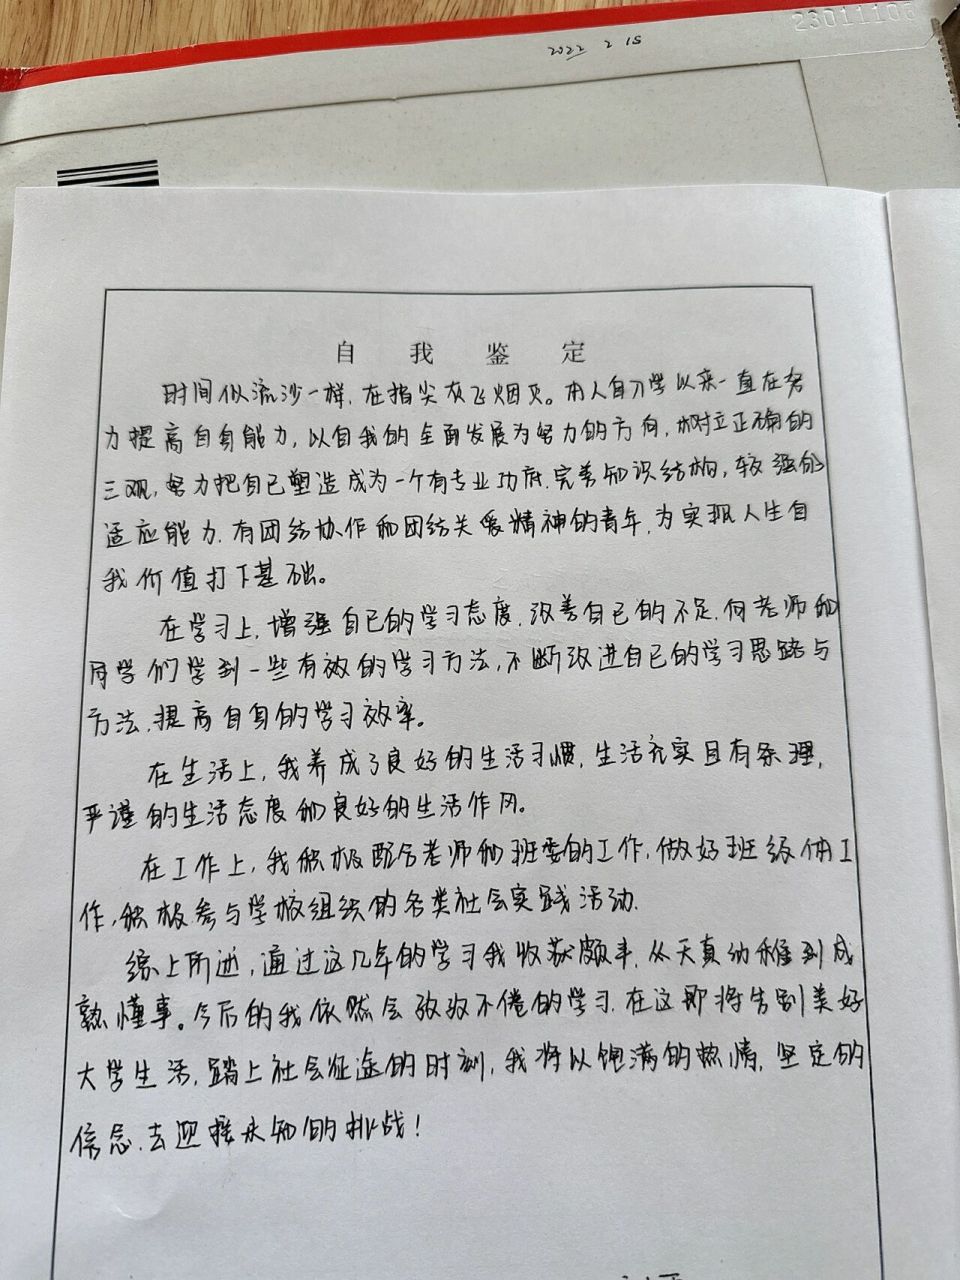 23011106
2022 2 15
自我鉴定
时间似流沙一样,在指尖灰飞烟灭。本人自入学以来一直在努
力提高自身能力,以自我的全面发展为努力的方向,树立正确的
三观,努力把自己塑造成为一个有专业功底.完善知识结构,较强的
适应能力.有团结协作和团结关爱精神的青年,为实现人生自
我价值打下基础。
在学习上,增强自己的学习态度,改善自己的不足.向老师和
同学们学到一些有效的学习方法,不断改进自己的学习思路与
方法.提高自身的学习效率。
在生活上,我养成了良好的生活习惯,生活充实且有条理,
严谨的生活态度和良好的生活作风。
在工作上,我积极配合老师和班委的工作,做好班级体工
作,积极参与学校组织的各类社会实践活动.
综上所述,通过这几年的学习我收获颇丰,从天真幼稚到成
熟懂事。今后的我依然会孜孜不倦的学习.在这即将告别美好
大学生活,踏上社会征途的时刻,我将以饱满的热情,坚定的
信念.去迎接未知的挑战!